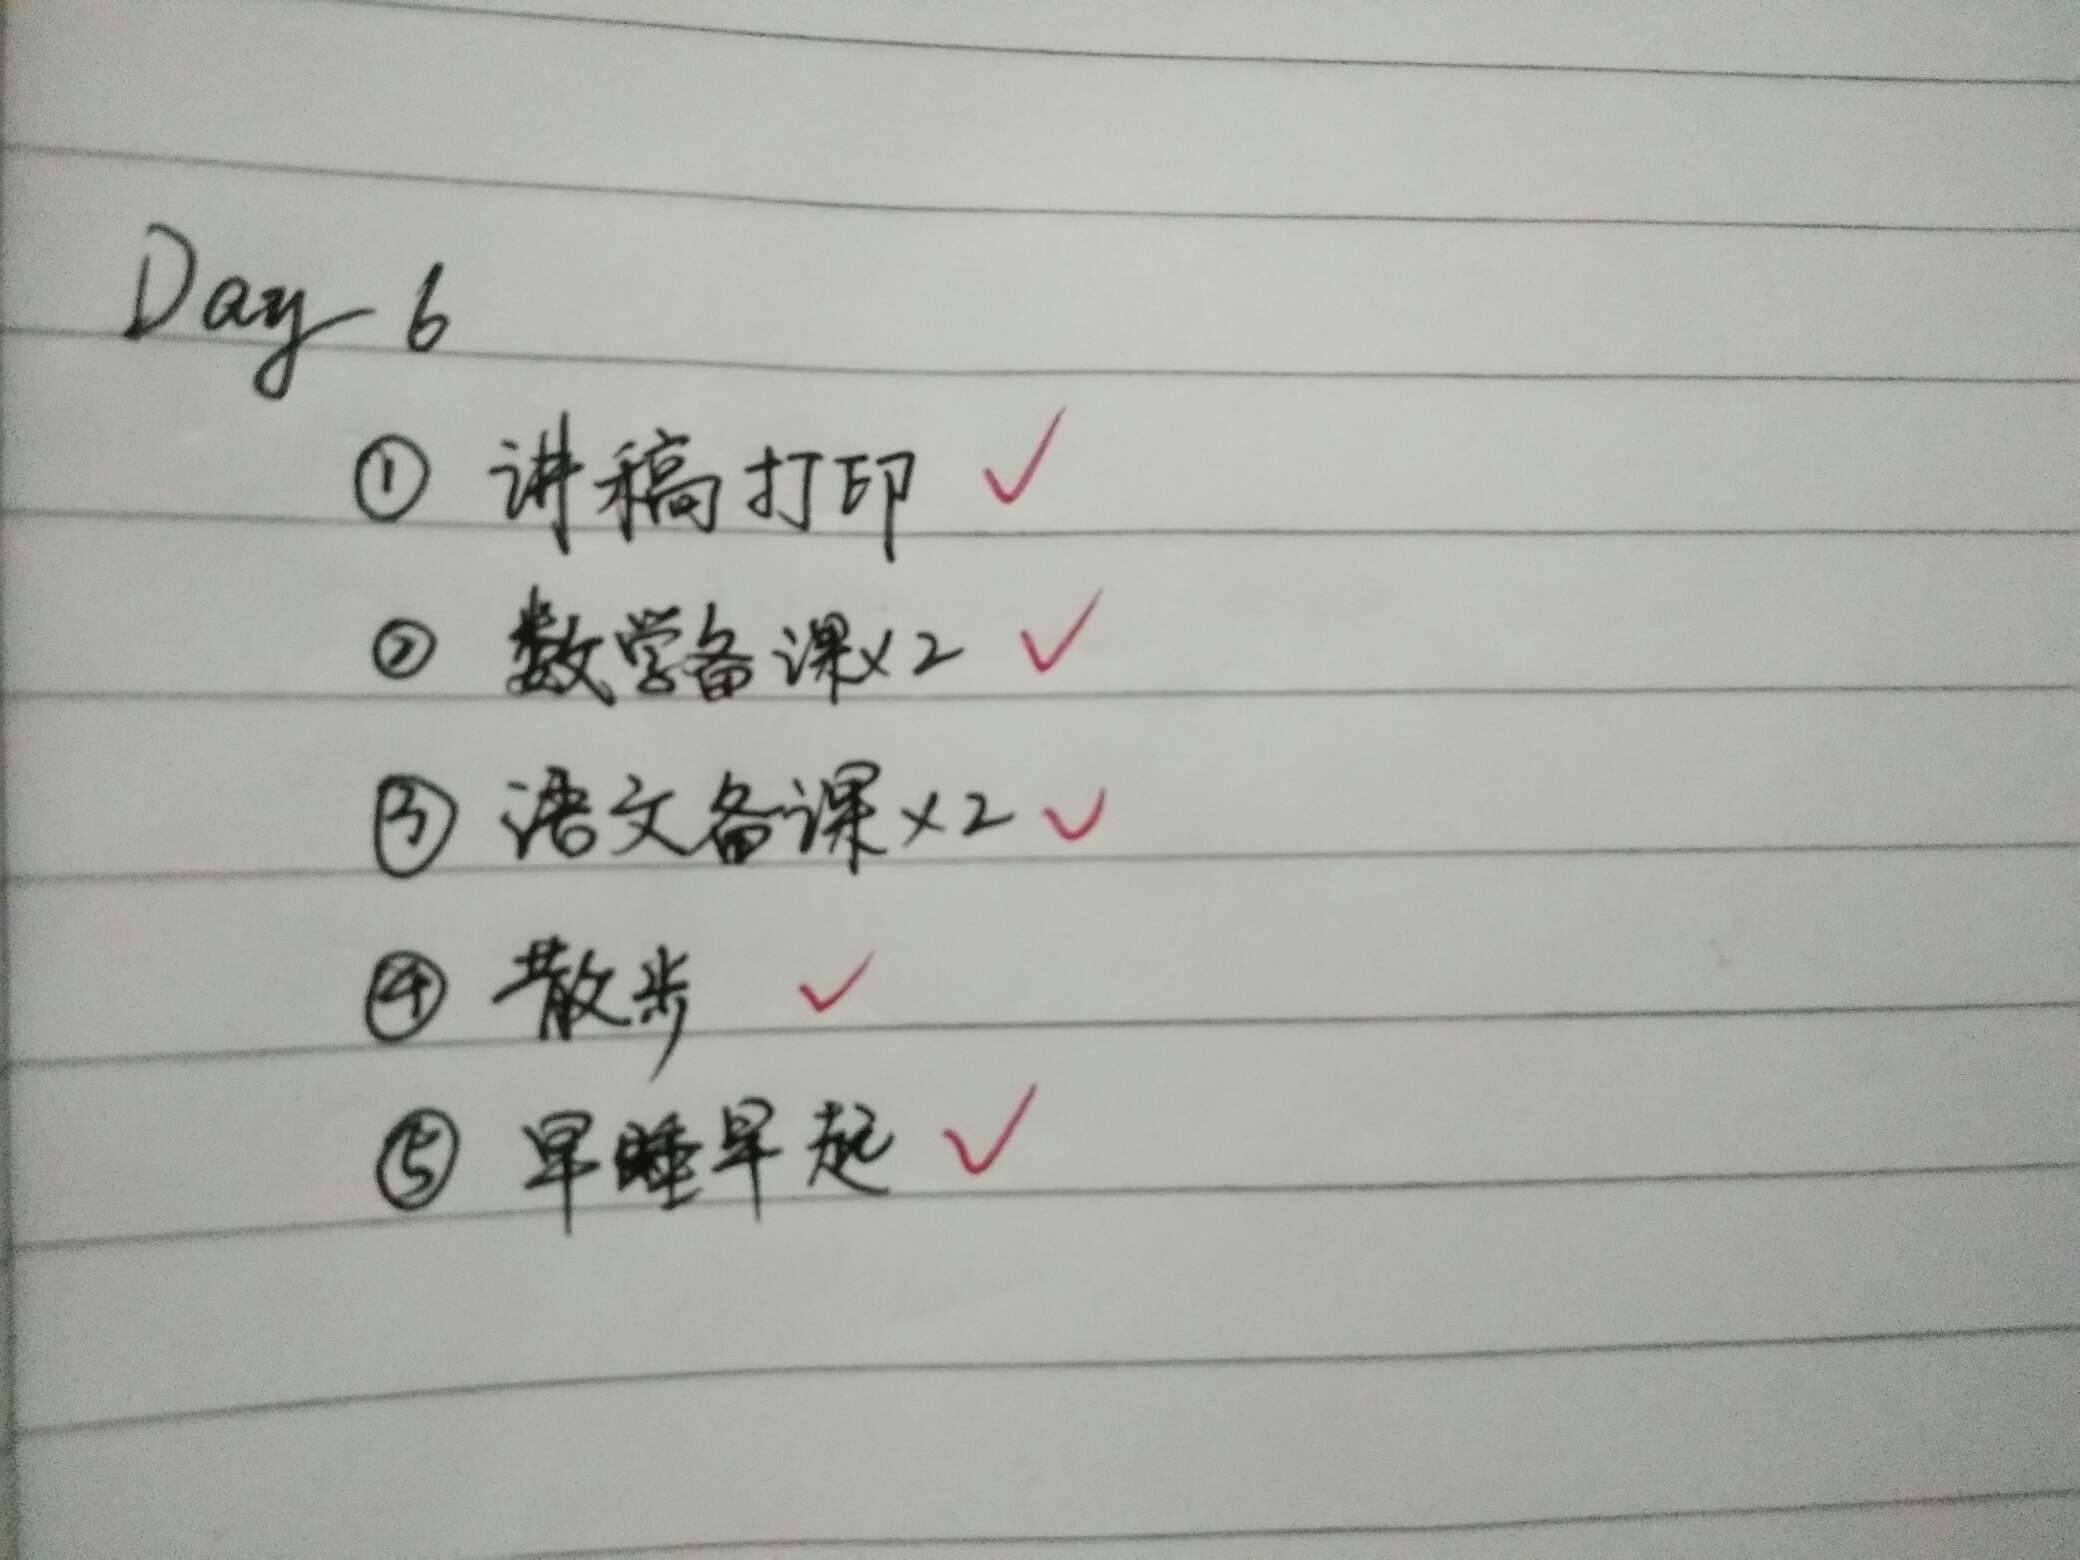 Day 6
① 讲稿打印 ✓
② 数学备课×2 ✓
③ 语文备课×2 ✓
④ 散步 ✓
⑤ 早睡早起 ✓